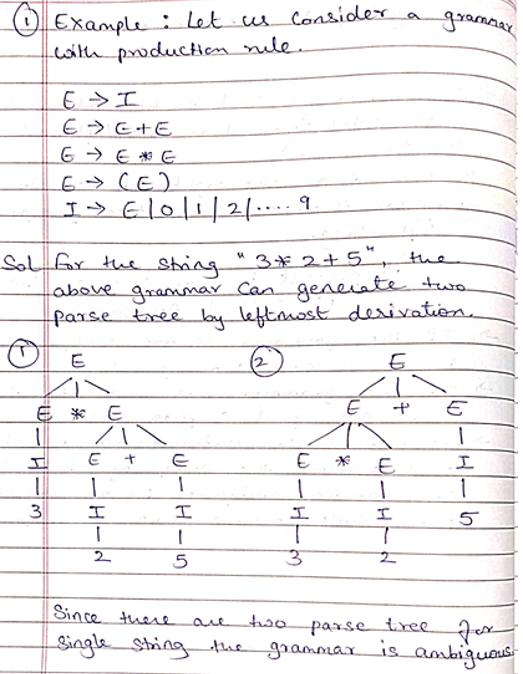 ① Example : Let us consider a grammar
with production rule.
E → I
E → E+E
E → E * E
E → (E)
I → E|0|1|2|.... 9
Sol For the string "3*2+5", the
above grammar can generate two
parse tree by leftmost derivation.
① E ② E
E * E E + E
I E + E E * E I
3 I I I I 5
2 5 3 2
Since there are two parse tree for
single string the grammar is ambiguous.